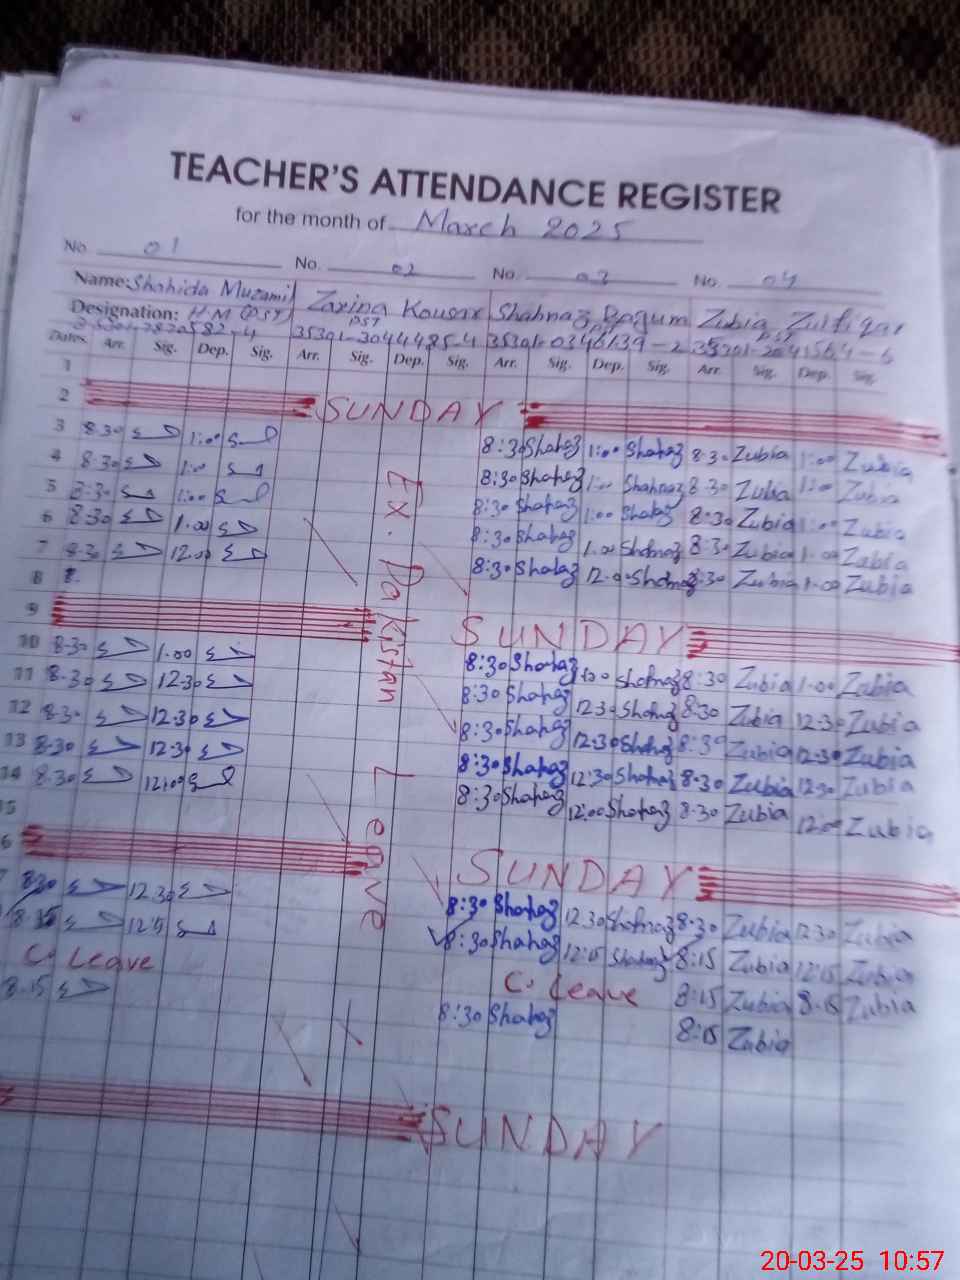 TEACHER'S ATTENDANCE REGISTER
for the month of March 2025
No 01 No. 02 No. 03 No. 04
Name: Shahida Muzamil Zarina Kousar Shahnaz Begum Zubia Zulfiqar
Designation: H.M (PST) PST PST PST
Dates Arr. Sig. Dep. Sig. Arr. Dep. Sig. Arr. Sig. Dep. Sig. Arr. Sig. Dep. Sig.
1
2 SUNDAY
3 8.30 1:00 8:30 Shahaz 1:00 Shahaz 8.30 Zubia 1:00 Zubia
4 8.30 1:00 8:30 Shahaz 1:00 Shahnaz 8.30 Zubia 1:00 Zubia
5 8.30 1:00 8:30 Shahaz 1:00 Shahaz 8:30 Zubia 1:00 Zubia
6 8:30 1.00 8:30 Shahaz 1.00 Shahnaz 8:30 Zubia 1.00 Zubia
7 8.30 12.00 8:30 Shahaz 12.00 Shahnaz 8:30 Zubia 1.00 Zubia
8 8.
9 SUNDAY
10 8.30 1.00 8:30 Shahaz 1:00 Shahnaz 8:30 Zubia 1.00 Zubia
11 8.30 12.30 8:30 Shahaz 12.30 Shahaz 8.30 Zubia 12.30 Zubia
12 8.30 12.30 8:30 Shahaz 12.30 Shahaz 8:30 Zubia 12.30 Zubia
13 8.30 12.30 8:30 Shahaz 12:30 Shahaz 8.30 Zubia 12.30 Zubia
14 8.30 12:00 8:30 Shahaz 12:00 Shahaz 8.30 Zubia 12:00 Zubia
15
6 SUNDAY
7 8.30 12.30 8:30 Shahaz 12.30 Shahnaz 8.30 Zubia 12.30 Zubia
8.15 12:15 8:30 Shahaz 12:15 Shahaz 8:15 Zubia 12:15 Zubia
C. Leave C. Leave 8:15 Zubia 8.15 Zubia
8.15 8:30 Shahaz 8:15 Zubia
SUNDAY
Ex. Pakistan Leave
20-03-25 10:57